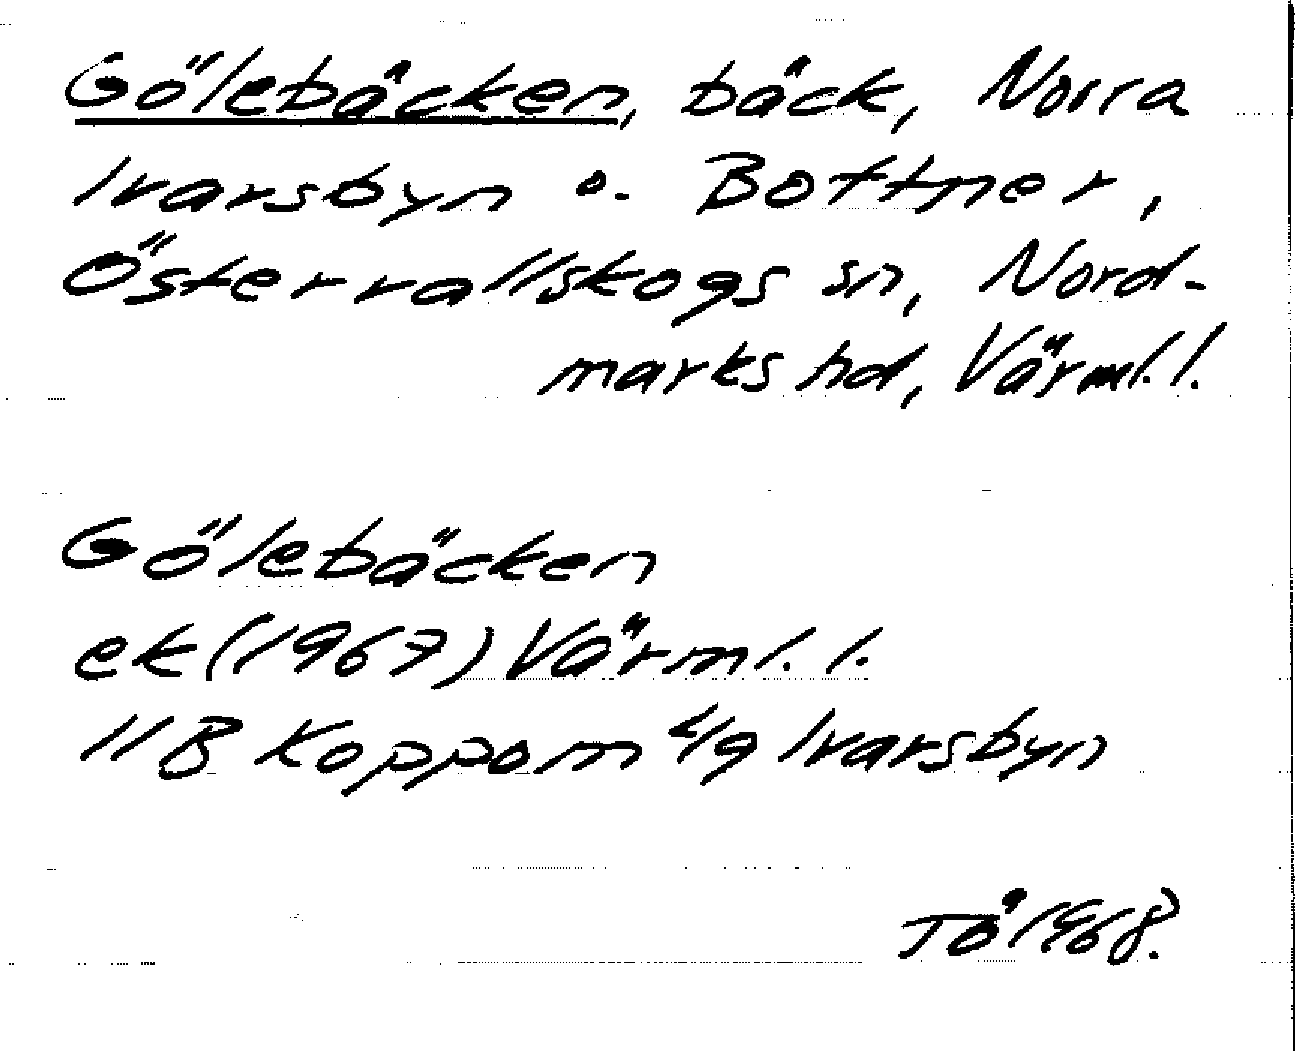 Gölebäcken, bäck, Norra
Ivarsbyn o. Bottner,
Östervallskogs sn, Nord-
marks hd, Värml. l.
Gölebäcken
ek (1967) Värml. l.
11B Koppom 4g Ivarsbyn
TÖ 1968.